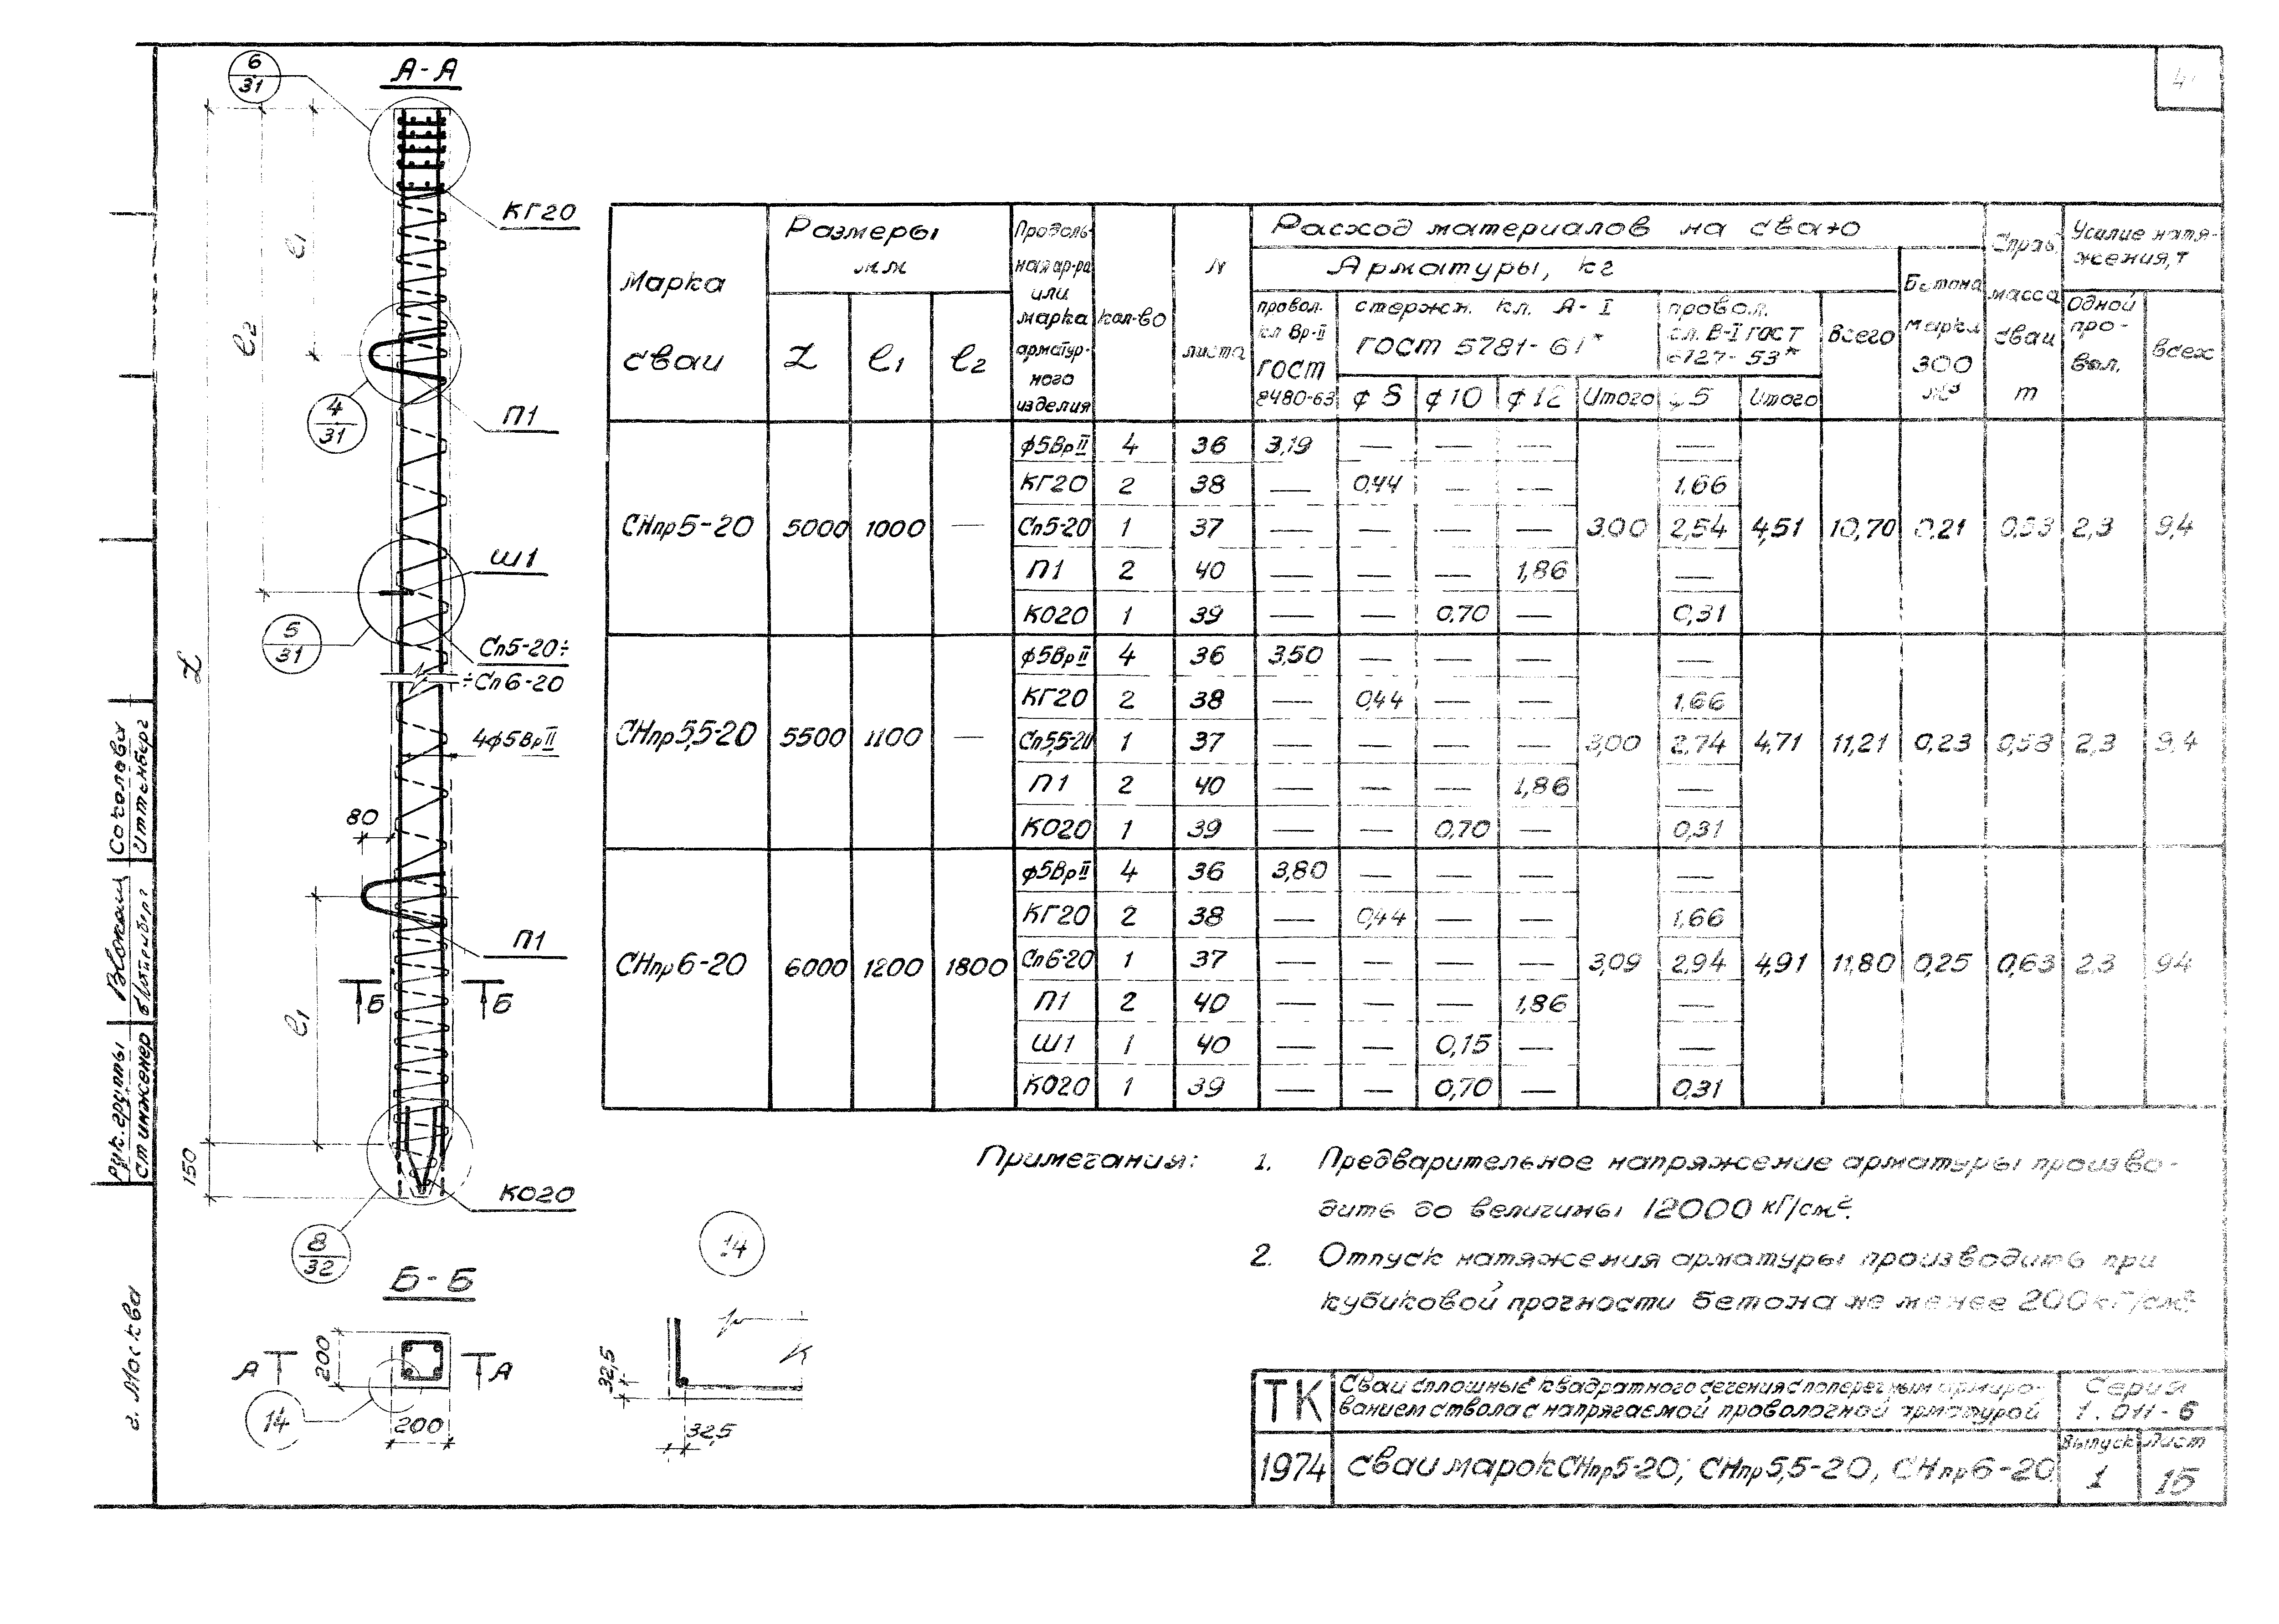 А-А
6
31
КГ20
ℓ1
ℓ2
П1
4
31
Ш1
5
31
Сп5-20÷
÷Сп6-20
L
4ф5ВрII
80
П1
Б Б
ℓ1
150
КО20
8
32
Б-Б
А А
200
200
14
14
32,5
32,5
Марка сваи
Размеры мм
L ℓ1 ℓ2
Продольная ар-ра или марка арматурного изделия
кол-во
N листа
Расход материалов на сваю
Арматуры, кг
провол. кл Вр-II ГОСТ 8480-63
стержн. кл. А-I ГОСТ 5781-61*
ф 10 ф 12 Итого
провол. кл. В-I ГОСТ 6727-53*
ф5 Итого
Всего
Бетона марки 300 м3
Справ. масса сваи т
Усилие натяжения, т
Одной провол. всех
СНпр5-20 5000 1000 — 3.00 4,51 10,70 0,21 0,53 2,3 9,4
ф5ВрII 4 36 3,19 — — — —
КГ20 2 38 — 0,44 — — 1,66
Сп5-20 1 37 — — — — 2,54
П1 2 40 — — — 1,86 —
КО20 1 39 — — 0,70 — 0,31
СНпр5,5-20 5500 1100 — 3,00 4,71 11,21 0,23 0,58 2,3 9,4
ф5ВрII 4 36 3,50 — — — —
КГ20 2 38 — 0,44 — — 1,66
Сп5,5-20 1 37 — — — — 2,74
П1 2 40 — — — 1,86 —
КО20 1 39 — — 0,70 — 0,31
СНпр6-20 6000 1200 1800 3,09 4,91 11,80 0,25 0,63 2,3 9,4
ф5ВрII 4 36 3,80 — — — —
КГ20 2 38 — 0,44 — — 1,66
Сп6-20 1 37 — — — — 2,94
П1 2 40 — — — 1,86 —
Ш1 1 40 — — 0,15 — —
КО20 1 39 — — 0,70 — 0,31
Примечания: 1. Предварительное напряжение арматуры произво-
дить до величины 12000 кГ/см2.
2. Отпуск натяжения арматуры производить при
кубиковой прочности бетона не менее 200кГ/см2.
ТК
Сваи сплошные квадратного сечения с поперечным армиро-
ванием ствола с напрягаемой проволочной арматурой
Серия
1.011-6
1974
Сваи марок СНпр5-20; СНпр5,5-20, СНпр6-20.
Выпуск Лист
1 15
Рук. группы
Ст инженер
Соколова
г. Москва